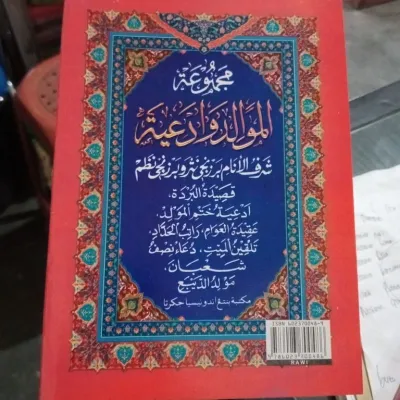 مجموعة
الموالد وأدعية
شرف الأنام برزنجي نثر وبرزنجي نظم
قصيدة البردة،
أدعية ختم المولد،
عقيدة العوام، راتب الحداد،
تلقين الميت، دعاء نصف
شعبان،
مولد الديبع
مكتبة بنتغ اندونيسيا جكرتا
RAWI